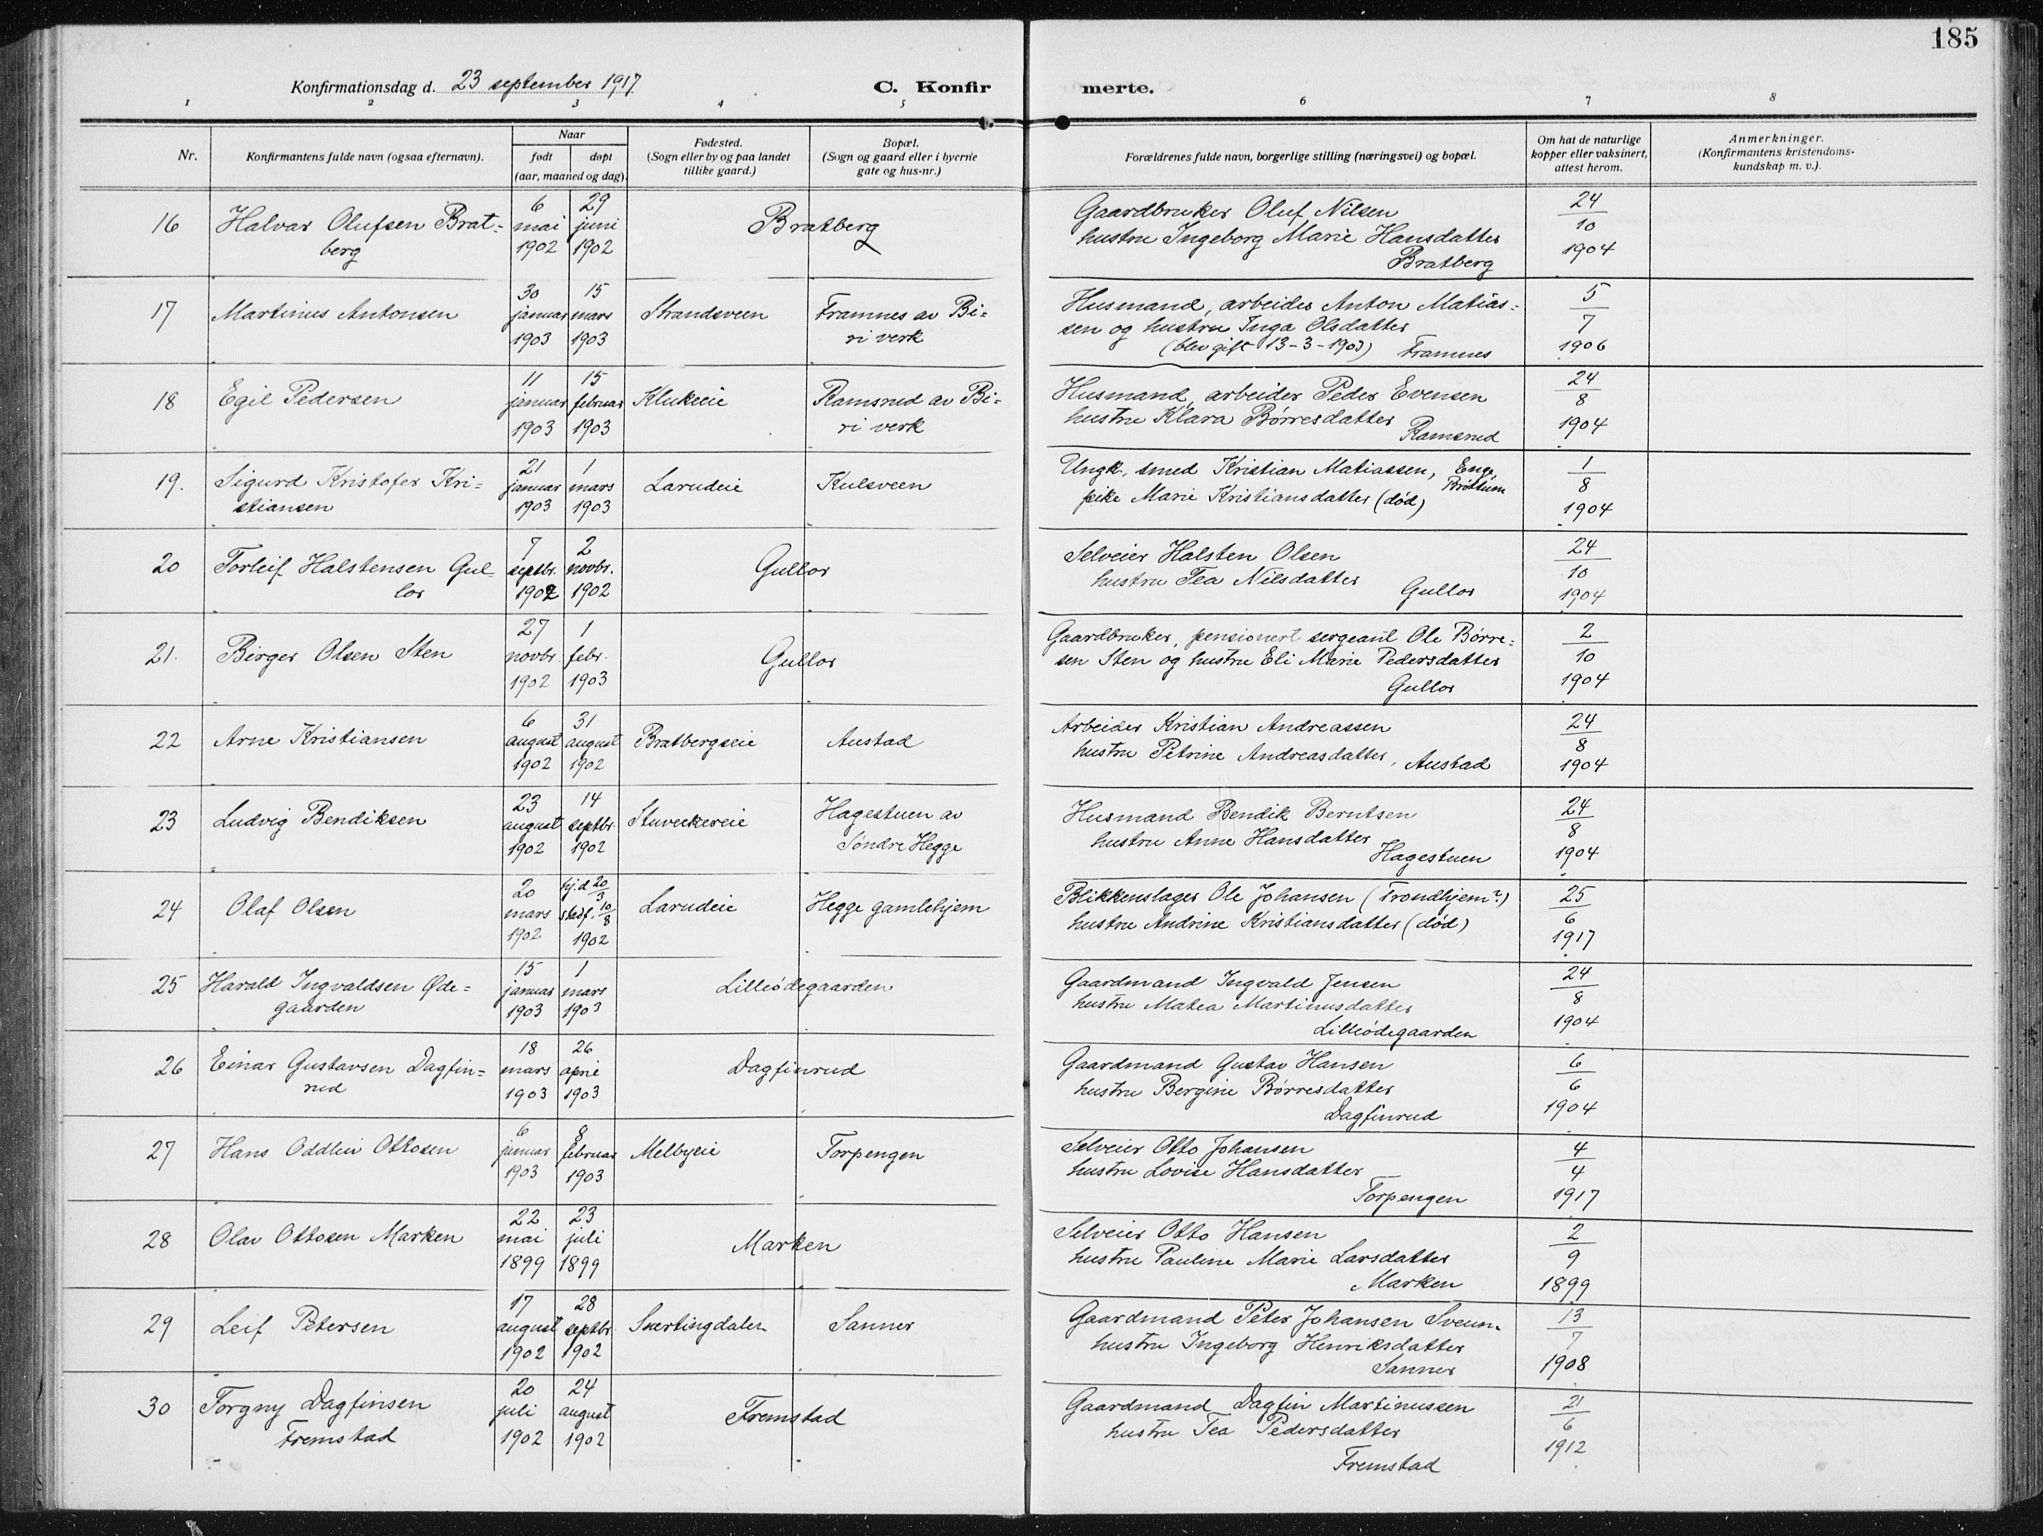 185
Konfirmationsdag d. 23 september 1917
C. Konfirmerte.
1 2 3 4 5 6 7 8
Nr.
Konfirmantens fulde navn (ogsaa efternavn).
Naar
født døpt
(aar, maaned og dag).
Fødested.
(Sogn eller by og paa landet
tillike gaard.)
Bopæl.
(Sogn og gaard eller i byerne
gate og hus-nr.)
Forældrenes fulde navn, borgerlige stilling (næringsvei) og bopæl.
Om hat de naturlige
kopper eller vaksinert,
attest herom.
Anmerkninger.
(Konfirmantens kristendoms-
kundskap m. v.).
16 Halvar Olufsen Brat-
berg
6 mai 1902
29 juni 1902
Bratberg
Gaardbruker Oluf Nilsen
hustru Ingeborg Marie Hansdatter
Bratberg
24/10 1904
17 Martinus Antonsen
30 januar 1903
15 mars 1903
Strandsveen
Framnes av Bi-
ri verk
Husmand, arbeider Anton Matias-
sen og hustru Inga Olsdatter
(blev gift 13-3-1903) Framnes
5/7 1906
18 Egil Pedersen
11 januar 1903
15 februar 1903
Klukeie
Ramsrud av Bi-
ri verk
Husmand, arbeider Peder Evensen
hustru Klara Børresdatter
Ramsrud
24/8 1904
19. Sigurd Kristofer Kri-
stiansen
21 januar 1903
1 mars 1903
Larudeie
Kulsveen
Ungk. smed Kristian Matiassen, Eng,
Brøttum
pike Marie Kristiansdatter (død)
1/8 1904
20 Torleif Halstensen Gul-
lor
7 septbr. 1902
2 novbr. 1902
Gullor
Selveier Halsten Olsen
hustru Tea Nilsdatter
Gullor
24/10 1904
21. Birger Olsen Sten
27 novbr. 1902
1 febr. 1903
Gullor
Gaardbruker, pensionert sergeant Ole Børre-
sen Sten og hustru Eli Marie Pedersdatter
Gullor
2/10 1904
22 Arne Kristiansen
6 august 1902
31 august 1902
Bratbergseie
Austad
Arbeider Kristian Andreassen
hustru Petrine Andreasdatter, Austad
24/8 1904
23 Ludvig Bendiksen
23 august 1902
14 septbr. 1902
Stuvekereie
Hagestuen av
Søndre Hegge
Husmand Bendik Berntsen
hustru Anne Hansdatter
Hagestuen
24/8 1904
24 Olaf Olsen
20 mars 1902
hj.d 20/3
stadf. 10/8 1902
Larudeie
Hegge gamlehjem
Blikkenslager Ole Johansen (Trondhjem?)
hustru Andrine Kristiansdatter (død)
25/6 1917
25 Harald Ingvaldsen Øde-
gaarden
15 januar 1903
1 mars 1903
Lilleødegaarden
Gaardmand Ingvald Jensen
hustru Matea Martinusdatter
Lilleødegaarden
24/8 1904
26 Einar Gustavsen Dagfin-
rud
18 mars 1903
26 april 1903
Dagfinrud
Gaardmand Gustav Hansen
hustru Bergine Børresdatter
Dagfinrud
6/6 1904
27 Hans Oddleiv Ottosen
6 januar 1903
8 februar 1903
Melbyeie
Torpengen
Selveier Otto Johansen
hustru Lovise Hansdatter
Torpengen
4/4 1917
28 Olav Ottosen Marken
22 mai 1899
23 juli 1899
Marken
Selveier Otto Hansen
hustru Pauline Marie Larsdatter
Marken
2/9 1899
29 Leif Petersen
17 august 1902
28 septbr. 1902
Snertingdalen
Sanner
Gaardmand Peter Johansen Sveum
hustru Ingeborg Henriksdatter
Sanner
13/7 1908
30 Torgny Dagfinsen
Fremstad
20 juli 1902
24 august 1902
Fremstad
Gaardmand Dagfin Martinussen
hustru Tea Pedersdatter
Fremstad
21/6 1912